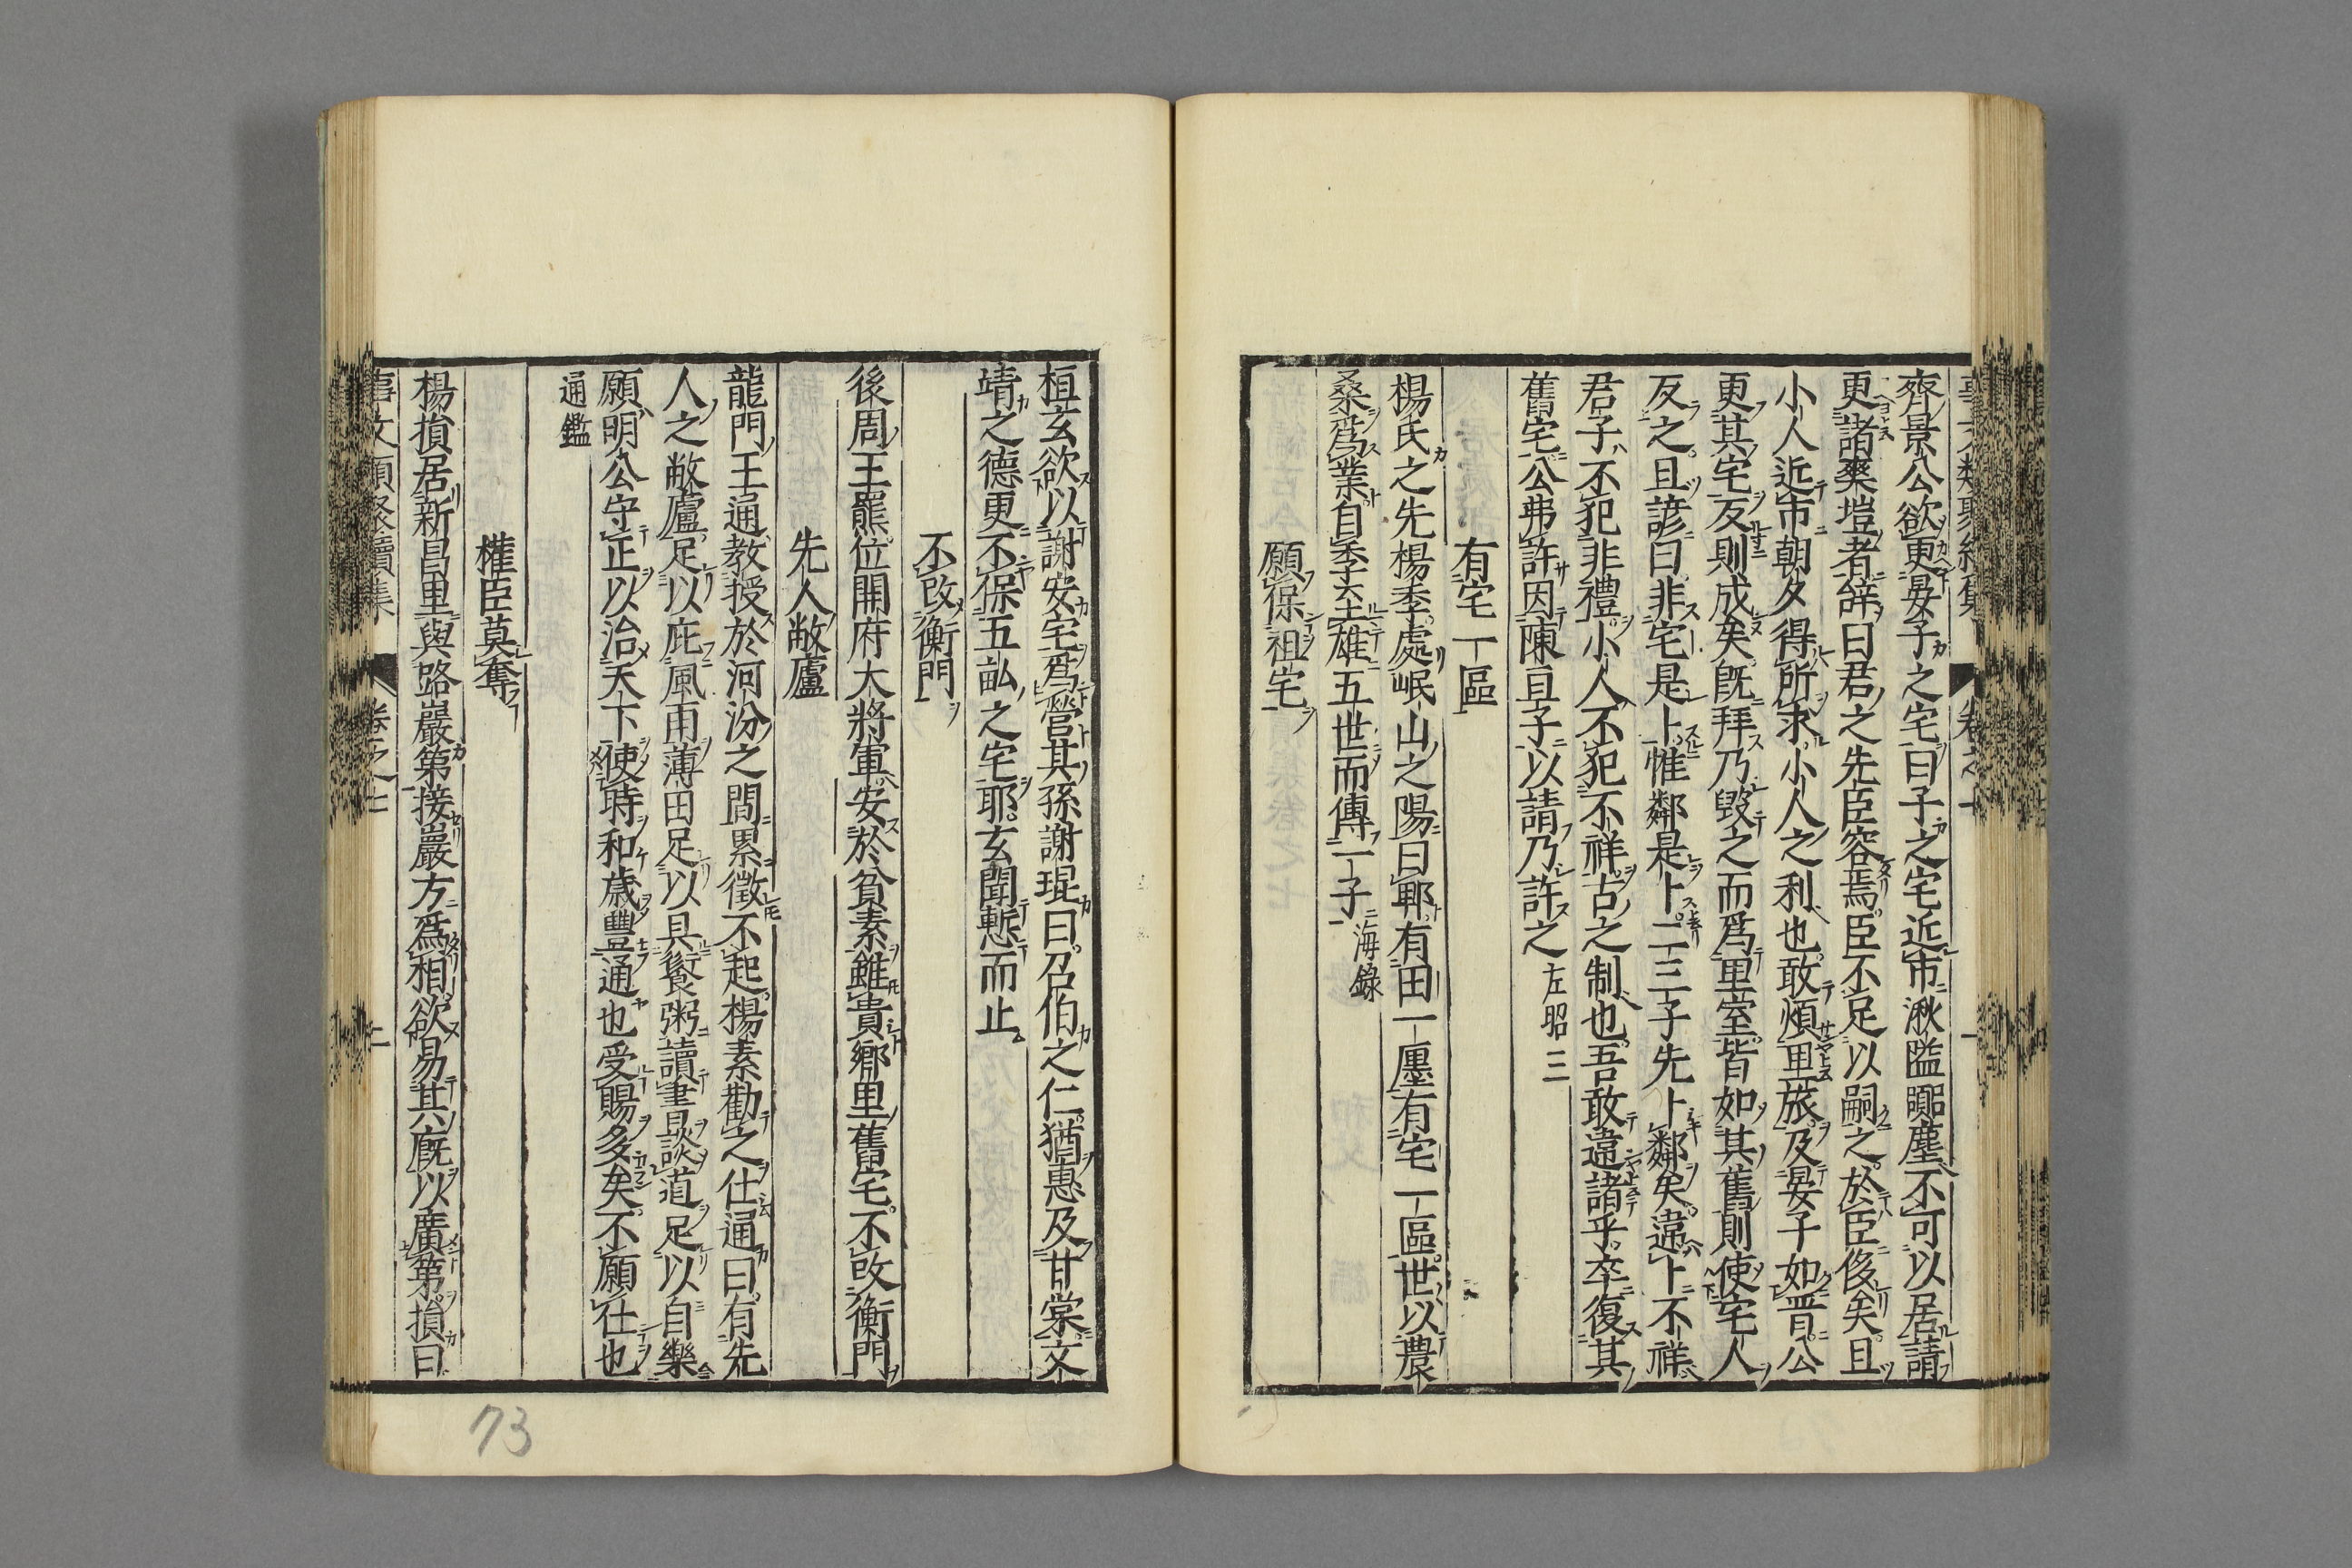 齊景公欲更晏子之宅曰子之宅近市湫隘嚻塵不可以居請
更諸爽塏者辭曰君之先臣容焉臣不足以嗣之於臣侈矣且
小人近市朝夕得所求小人之利也敢煩里旅及晏子如晋公
更其宅反則成矣旣拜乃毀之而爲里室皆如其舊則使宅人
反之且諺曰非宅是卜惟鄰是卜二三子先卜鄰矣違卜不祥
君子不犯非禮小人不犯不祥古之制也吾敢違諸乎卒復其
舊宅公弗許因陳亘子以請乃許之 左昭三
有宅一區
楊氏之先楊季處岷山之陽曰郫有田一㕓有宅一區世以農
桑爲業自季至雄五世而傳一子 海錄
願保祖宅
桓玄欲以謝安宅爲營其孫謝琨曰召伯之仁猶惠及甘棠文
靖之德更不保五畝之宅耶玄聞慙而止
不改衡門
後周王羆位開府大將軍安於貧素雖貴鄉里舊宅不改衡門
先人敝廬
龍門王通教授於河汾之間累徵不起楊素勸之仕通曰有先
人之敝廬足以庇風雨薄田足以具饘粥讀書談道足以自樂
願明公守正以治天下使時和歲豐通也受賜多矣不願仕也
通鑑
權臣莫奪
楊損居新昌里與路巖第接巖方爲相欲易其廐以廣第損曰
事文類聚續集 卷之七 二
73